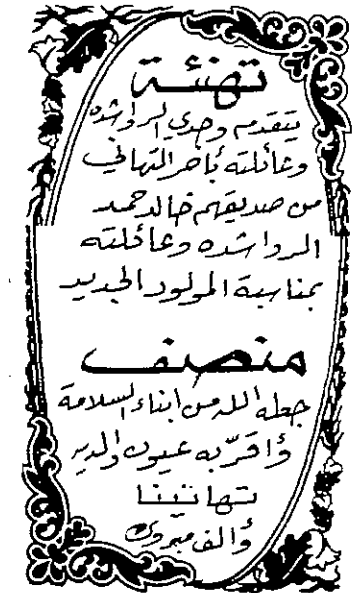 تهنئة
يتقدم وجدي الرواشده
وعائلته بأحر التهاني
من صديقهم خالد حمد
الرواشده وعائلته
بمناسبة المولود الجديد
منصف
جعله الله من ابناء السلامة
وأقر به عيون والديه
تهانينا
وألف مبروك